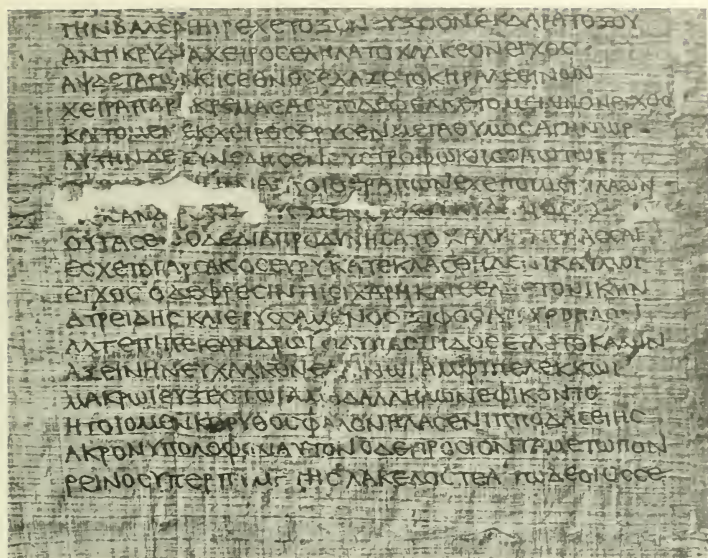 ΤΗΝΒΑΛΕΝΗΙΡΕΧΕΤΟΞΟΝΕΥΞΟΟΝΕΚΔΑΡΑΤΟΞΟΥ
ΑΝΤΙΚΡΥΔΙΑΧΕΙΡΟΣΕΛΗΛΑΤΟΧΑΛΚΕΟΝΕΓΧΟΣ
ΑΨΔΕΤΑΡΩΝΕΙΣΕΘΝΟΣΕΧΑΖΕΤΟΚΗΡΑΛΕΕΙΝΩΝ
ΧΕΙΡΑΠΑΡΑΚΡΕΜΑΣΑΣΤΟΔΕΦΕΛΚΕΤΟΜΕΙΛΙΝΟΝΕΓΧΟΣ
ΚΑΙΤΟΜΕΝΕΚΧΕΙΡΟΣΕΡΥΣΕΝΜΕΓΑΘΥΜΟΣΑΓΗΝΩΡ
ΑΥΤΗΝΔΕΞΥΝΕΔΗΣΕΝΕΥΣΤΡΟΦΩΙΟΙΟΣΑΩΤΩΙ
ΘΕΡΑΠΩΝΕΧΕΠΟΙΜΕΝΙΛΑΩΝ
ΣΑΝΔΡ
ΟΥΤΑΣΕΝΟΔΕΔΙΑΠΡΟΔΥΝΗΣΑΤΟΧΑΛΚΟΝΕΛΑΣΣΑΙ
ΕΣΧΕΤΟΓΑΡΣΑΚΟΣΕΥΡΥΚΑΤΕΚΛΑΣΘΗΔΕΝΙΚΑΥΛΩΙ
ΕΓΧΟΣΟΔΕΦΡΕΣΙΝΗΙΣΙΧΑΡΗΚΑΙΕΕΛΠΕΤΟΝΙΚΗΝ
ΑΤΡΕΙΔΗΣΚΑΙΕΡΥΣΣΑΜΕΝΟΣΞΙΦΟΣΑΡΓΥΡΟΗΛΟΝ
ΑΛΤΕΠΙΠΕΙΣΑΝΔΡΩΙΟΔΥΠΑΣΠΙΔΟΣΕΙΛΕΤΟΚΑΛΗΝ
ΑΞΕΙΝΗΝΕΥΧΑΛΚΟΝΕΛΑΙΝΩΙΑΜΦΙΠΕΛΕΚΚΩΙ
ΜΑΚΡΩΙΕΥΞΕΣΤΩΙΑΜΑΔΑΛΛΗΛΩΝΕΦΙΚΟΝΤΟ
ΗΤΟΙΟΜΕΝΚΟΡΥΘΟΣΦΑΛΟΝΗΛΑΣΕΝΙΠΠΟΔΑΣΕΙΗΣ
ΑΚΡΟΝΥΠΟΛΟΦΟΝΑΥΤΟΝΟΔΕΠΡΟΣΙΟΝΤΑΜΕΤΩΠΟΝ
ΡΕΙΝΟΣΥΠΕΡΠΥΜΑΤΗΣΛΑΚΕΔΟΣΤΕΑΤΩΔΕΟΙΟΣΣΕ